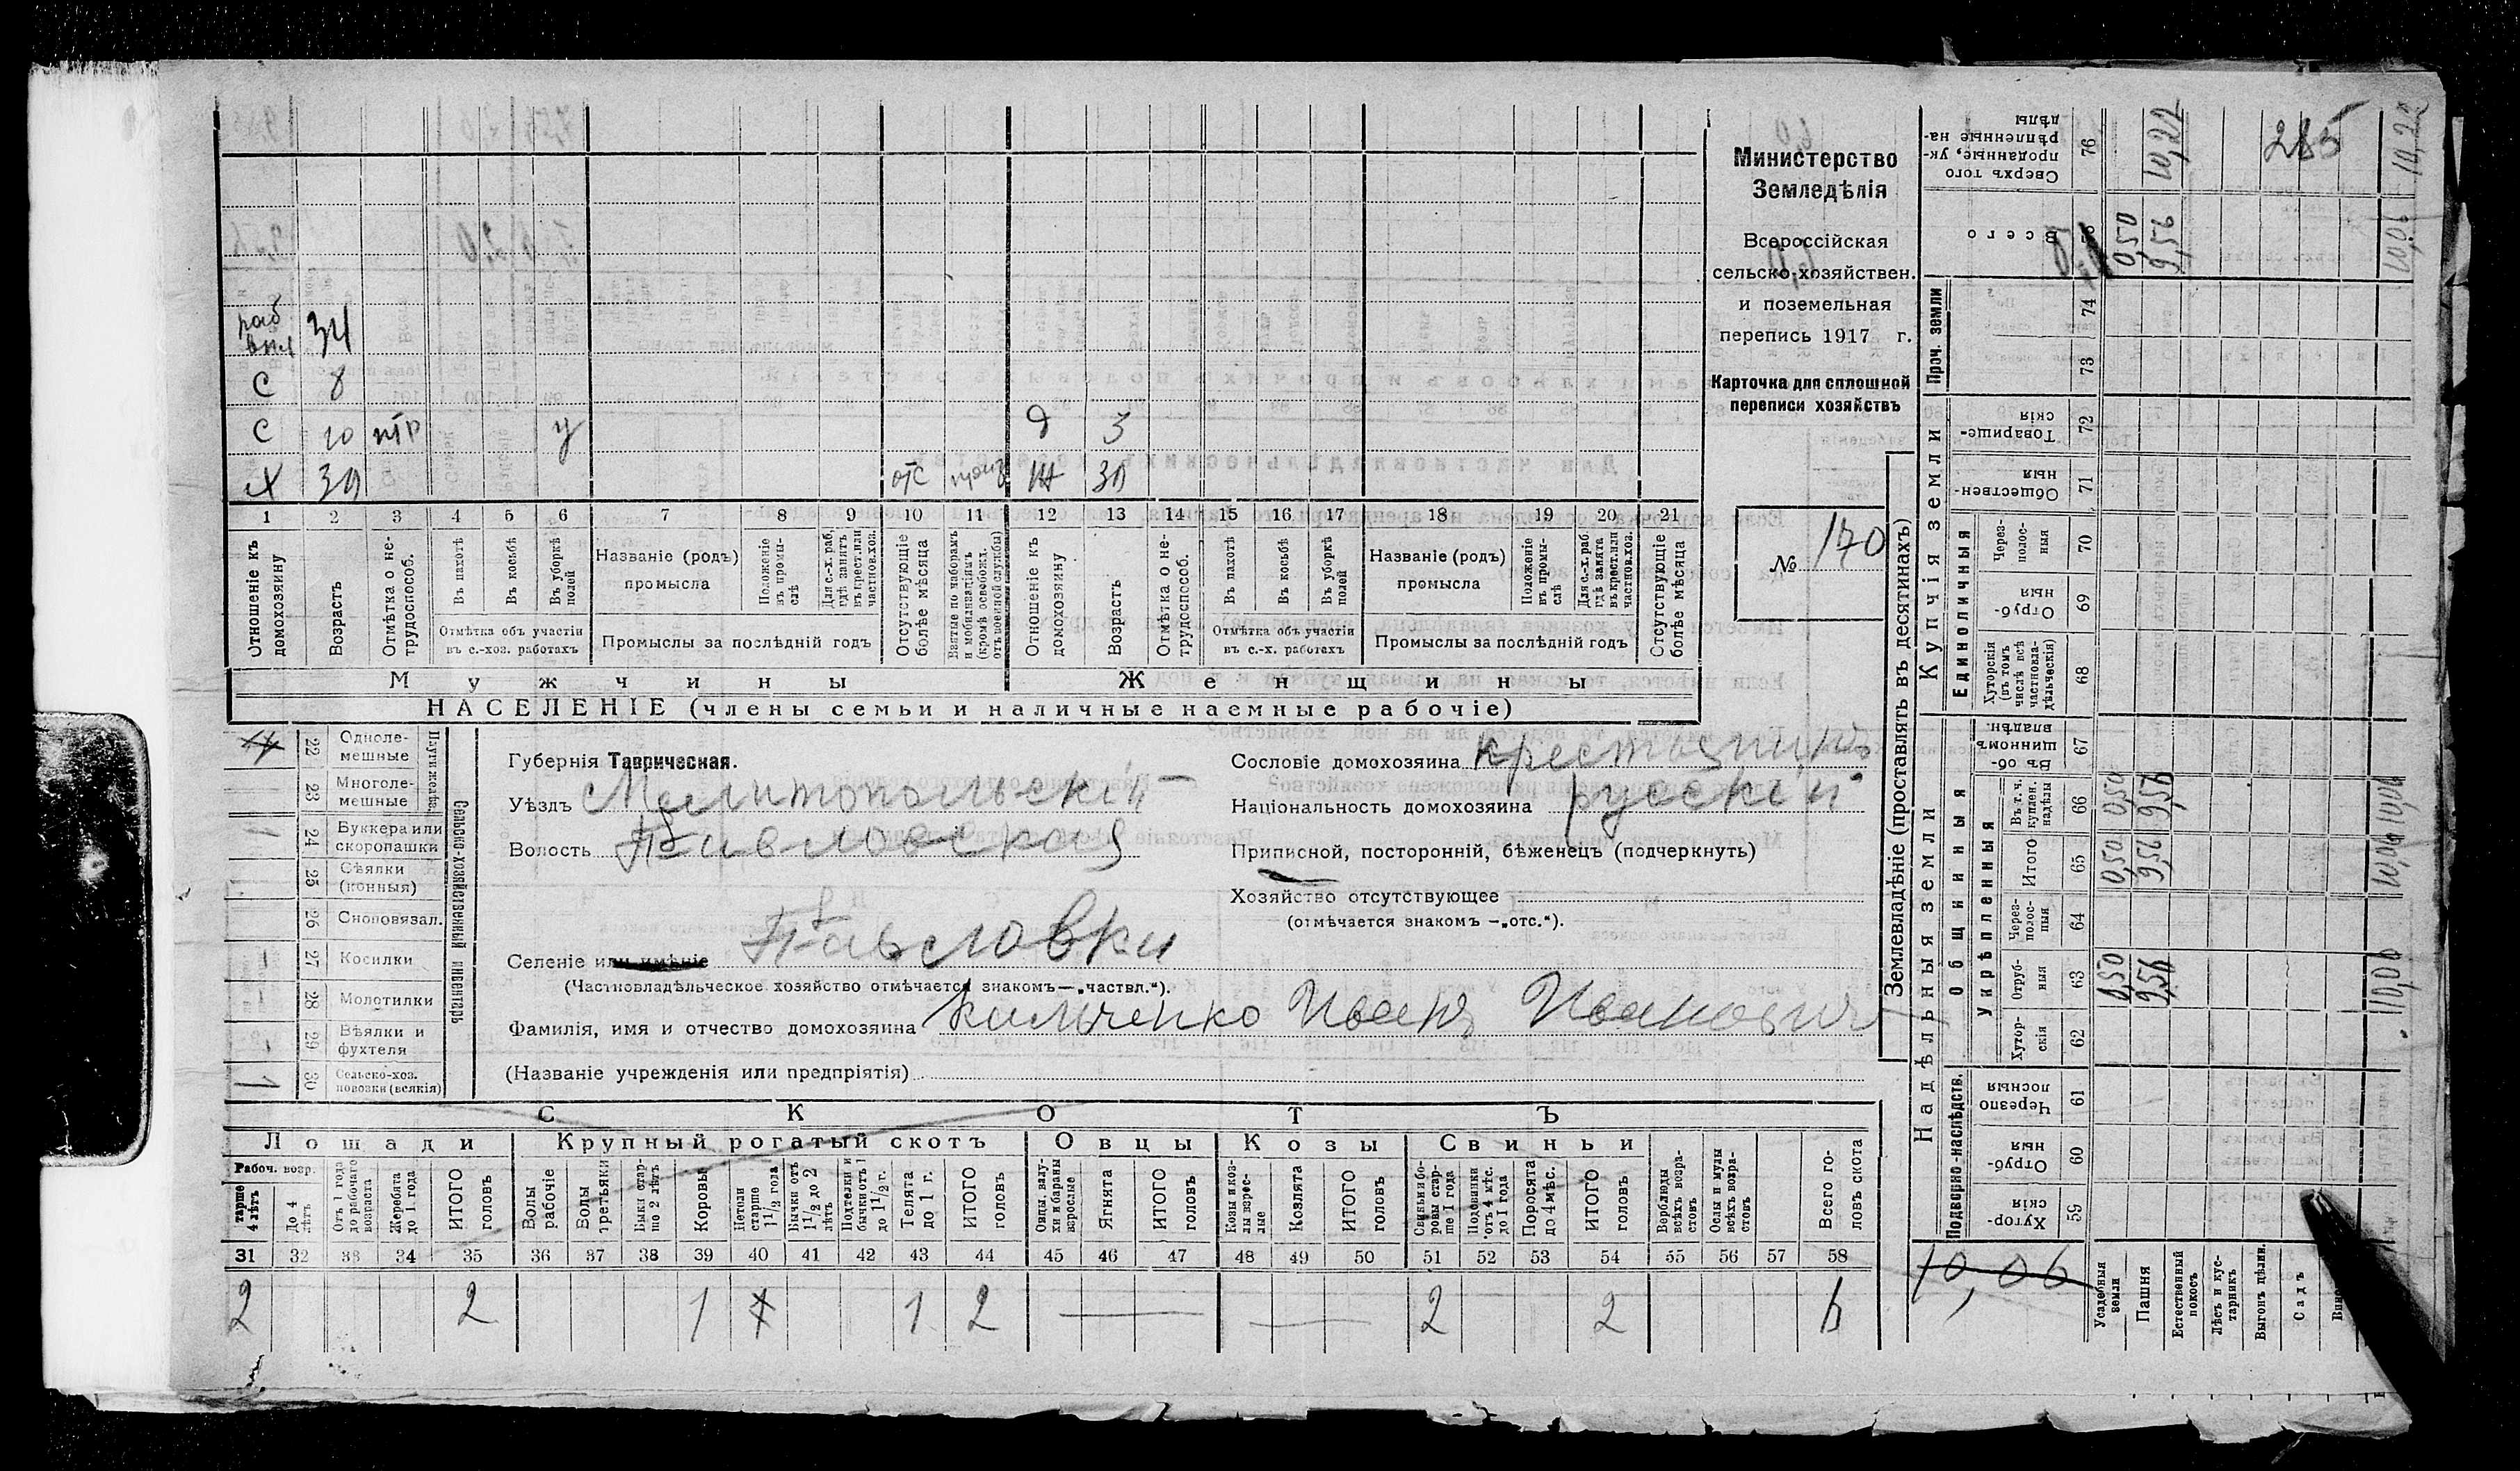 раб
34
С 8
С 10 у д 3
Х 39 отс Ж 30
1 2 3 4 5 6 7 8 9 10 11 12 13 14 15 16 17 18 19 20 21
Отношеніе къ домохозяину
Возрастъ
Отмѣтка о не-
трудоспособ.
Въ пахотѣ
Въ косьбѣ
Въ уборкѣ
полей
Отмѣтка объ участіи
въ с.-хоз. работахъ
Названіе (родъ)
промысла
Положеніе
въ промы-
слѣ
Для с.-х. раб.
гдѣ занятъ
въ крест. или
частнов. хоз.
Промыслы за послѣдній годъ
Отсутствующіе
болѣе мѣсяца
Взятые по наборамъ
и мобилизаціямъ
(кромѣ освобожд.
отъ военной службы)
Отношеніе къ
домохозяину
Возрастъ
Отмѣтка о не-
трудоспособ.
Въ пахотѣ
Въ косьбѣ
Въ уборкѣ
полей
Отмѣтка объ участіи
въ с.-х. работахъ
Названіе (родъ)
промысла
Положеніе
въ промы-
слѣ
Для с.-х. раб.
гдѣ занята
въ крест. или
частнов. хоз.
Промыслы за послѣдній годъ
Отсутствующіе
болѣе мѣсяца
Мужчины
Женщины
НАСЕЛЕНІЕ (члены семьи и наличные наемные рабочіе)
Министерство
Земледѣлія
Всероссійская
сельско-хозяйствен.
и поземельная
перепись 1917 г.
Карточка для сплошной
переписи хозяйствъ
№ 170
Сельско-хозяйственный инвентарь
Плуги желѣзн.
22 Однолемешные
23 Многолемешные
1 24 Буккера или
скоропашки
25 Сѣялки
(конныя)
26 Сноповязал.
27 Косилки
28 Молотилки
29 Вѣялки и
фухтеля
1 30 Сельско-хоз.
повозки (всякія)
Губернія Таврическая.
Уѣздъ Мелитопольскій
Волость Павловская
Селеніе или имѣніе Павловки
(Частновладѣльческое хозяйство отмѣчается знакомъ—„частвл.“).
Фамилія, имя и отчество домохозяина Кильченко Иванъ Ивановичъ
(Названіе учрежденія или предпріятія)
Сословіе домохозяина крестьянинъ
Національность домохозяина русскій
Приписной, посторонній, бѣженецъ (подчеркнуть)
Хозяйство отсутствующее
(отмѣчается знакомъ —„отс.“).
СКОТЪ
Лошади
Крупный рогатый скотъ
Овцы
Козы
Свиньи
Рабоч. возр.
старше
4 лѣтъ
До 4
лѣтъ
Отъ 1 года
до рабочаго
возраста
Жеребята
до 1 года
ИТОГО
головъ
Волы
рабочіе
Волы
третьяки
Быки стар-
ше 2 лѣтъ
Коровы
Нетели
старше
1½ года
Бычки отъ
1½ до 2
лѣтъ
Подтелки и
бычки отъ 1
до 1½ г.
Телята
до 1 г.
ИТОГО
головъ
Овцы, валу-
хи и бараны
взрослые
Ягнята
ИТОГО
головъ
Козы и коз-
лы взрос-
лые
Козлята
ИТОГО
головъ
Свиньи и бо-
ровы стар-
ше 1 года
Подсвинки
отъ 4 мѣс.
до 1 года
Поросята
до 4 мѣс.
ИТОГО
головъ
Верблюды
всѣхъ возра-
стовъ
Ослы и мулы
всѣхъ возра-
стовъ
Всего го-
ловъ скота
31 32 33 34 35 36 37 38 39 40 41 42 43 44 45 46 47 48 49 50 51 52 53 54 55 56 57 58
2 2 1 1 2 2 2 6
Землевладѣніе (проставлять въ десятинахъ)
Сверхъ того
проданные, ук-
рѣпленные на-
дѣлы
76 10,22 285 10,22
Всего
0,50 9,56 10,06
Проч. земли
74
73
Купчія земли
Товарище-
скія
72
Обществен-
ныя
71
Единоличныя
Через-
полос-
ныя
70
Отруб-
ныя
69
Хуторскія
(въ томъ
числѣ всѣ
частновла-
дѣльческія)
68
Надѣльныя земли
Общинныя
Въ об-
щинномъ
владѣн.
67
Укрѣпленныя
Въ т. ч.
куплен.
надѣлы
66 0,50 9,56 10,06
Итого
65 0,50 9,56 10,06
Через-
полос-
ныя
64
Отруб-
ныя
63 0,50 9,56 10,06
Хутор-
скія
62
Подворно-наслѣдств.
Черезпо
лосныя
61
Отруб-
ныя
60
Хутор-
скія
59
10,06
Усадебныя
земли
Пашня
Естественный
покосъ
Лѣсъ и кус-
тарникъ
Выгонъ цѣлин.
Садъ